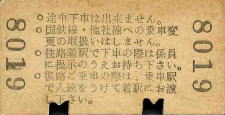 8019
○途中下車は出来ません。
○国鉄線・他社線への乗車変
更の取扱いはしません。
○往路着駅で下車の際は係員
に提示のうえお持ち下さい。
○復路ご乗車の際は、乗車駅
で入鋏をうけて着駅にお渡
し下さい。
8019